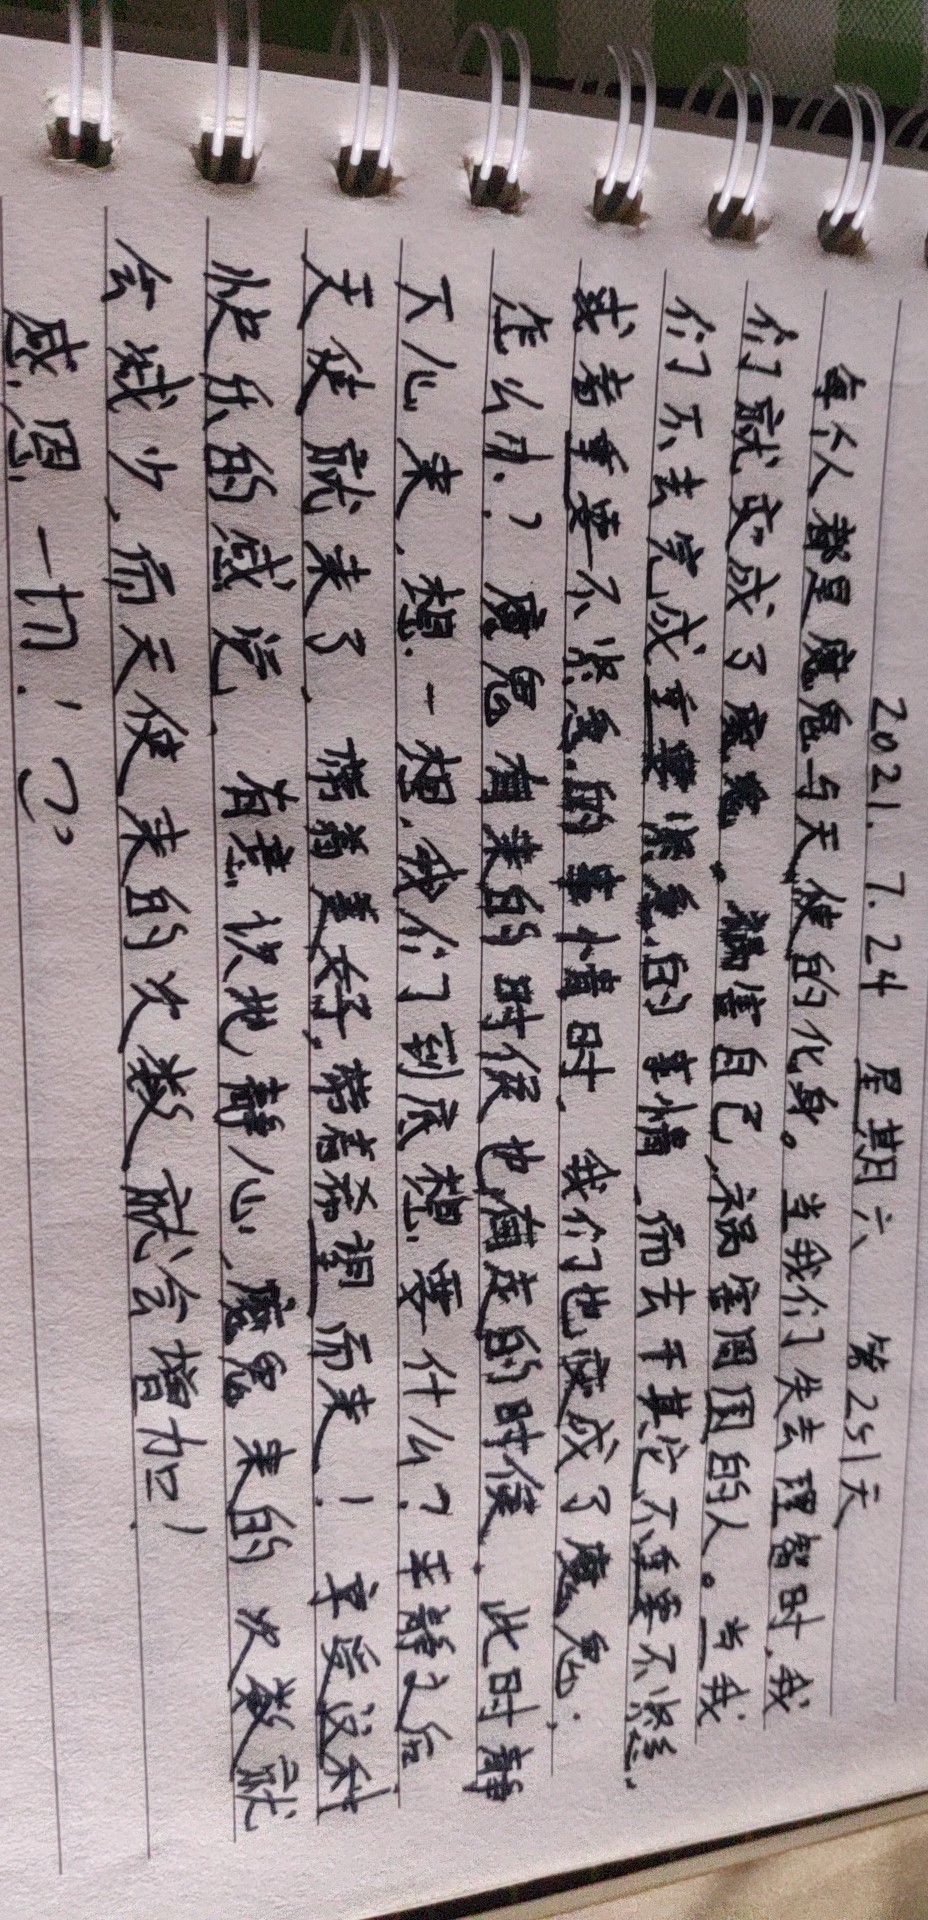 2021.7.24 星期六 第251天
每人都是魔鬼与天使的化身。当我们失去理智时,我
们就变成了魔鬼。祸害自己,祸害周围的人。当我
们不去完成重要紧急的事情,而去干其他不重要不紧急.
或者重要不紧急的事情时,我们也变成了魔鬼.
怎么办?魔鬼有来的时候也有走的时候.此时静
下心来,想一想,我们到底想要什么?平静之后
天使就来了.带着美好,带着希望而来!享受这种
快乐的感觉.有意识地静心,魔鬼来的次数就
会减少,而天使来的次数就会增加!
感恩一切!